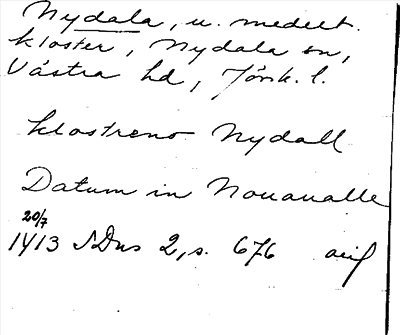 Nydala, u. medelt.
kloster, Nydala sn,
Västra hd, Jönk. l.
klostreno Nydall
Datum in Nouaualle
20/7
1413 SDns 2, s. 676 avif